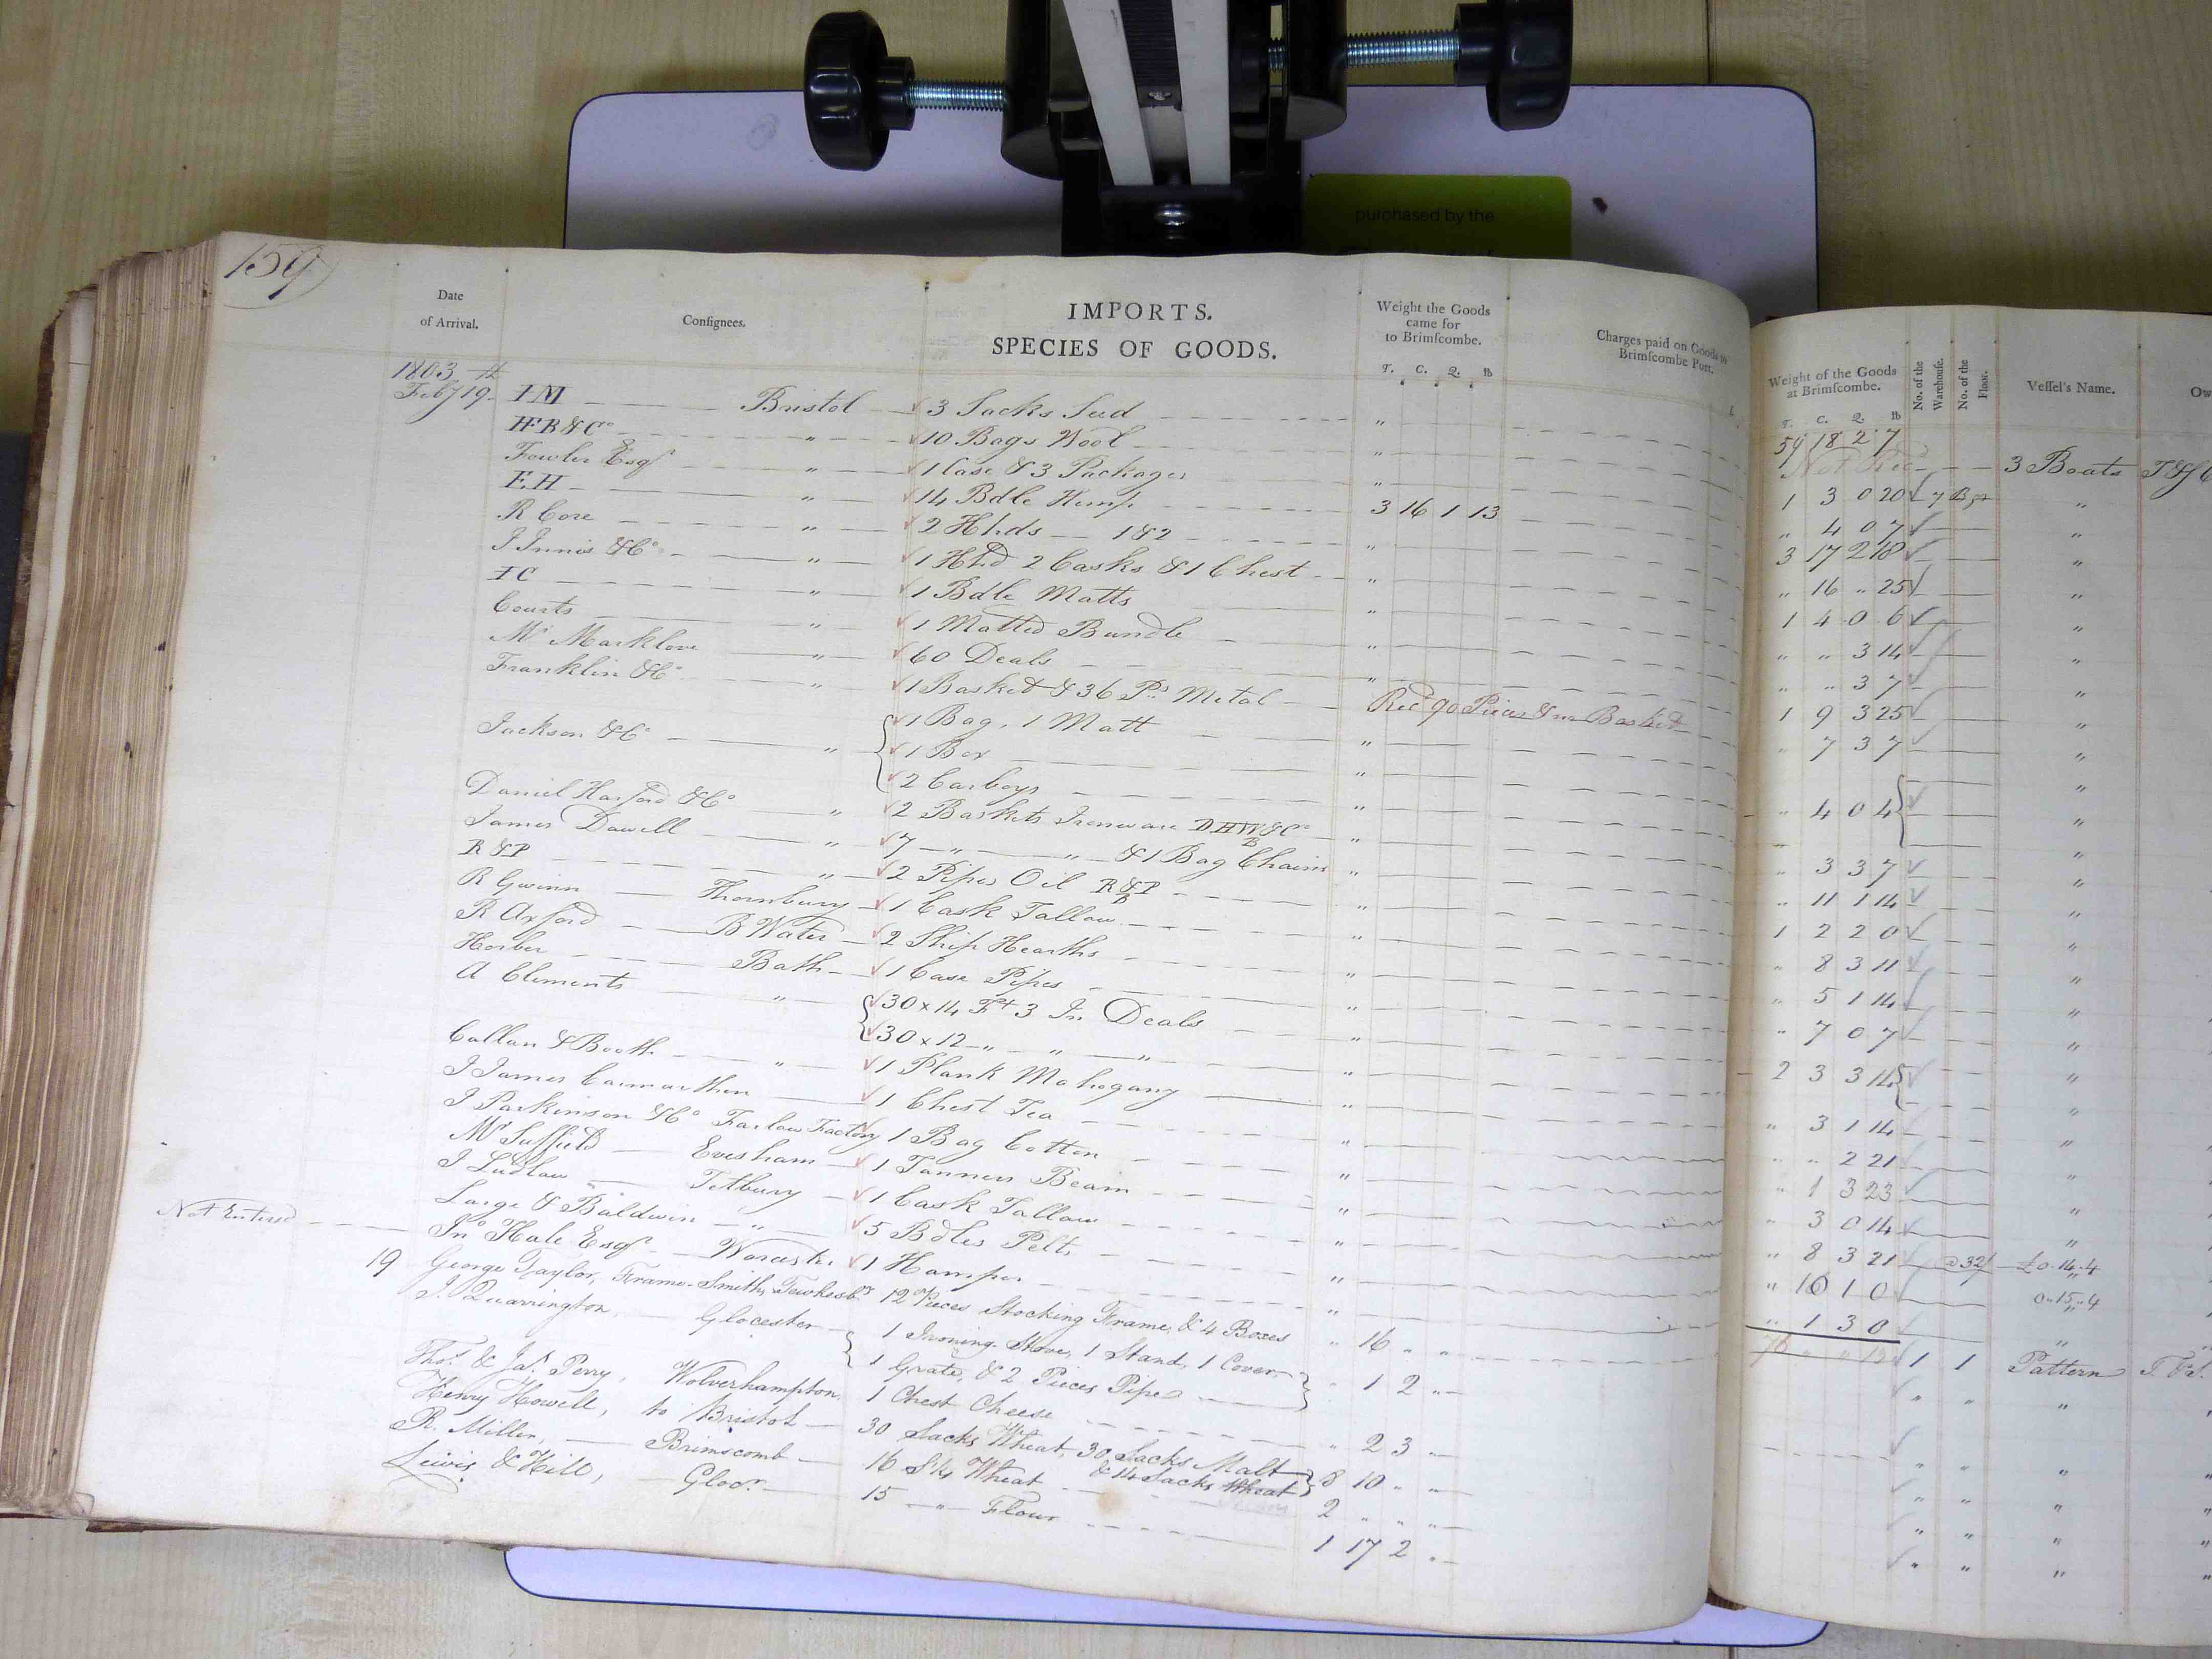 purchased by the
159
Date of Arrival.
Consignees.
IMPORTS.
SPECIES OF GOODS.
Weight the Goods came for to Brimscombe.
T. C. Q. lb
Charges paid on Goods to Brimscombe Port.
Weight of the Goods at Brimscombe.
T. C. Q. lb
No. of the Warehouse.
No. of the Floor.
Vessel's Name.
Ow
59 18 2 7
1803
Feby 19th I M Bristol 3 Sacks Seed " Not Rec 3 Boats T & J C
H B & Co " 10 Bags Wool " 1 3 0 20 "
Fowler Esqr " 1 Case & 3 Packages " " 4 0 7 "
E H " 14 Bdle Hemp 3 16 1 13 3 17 2 18 "
R Core " 2 Hhds 1 & 2 " " 16 " 25 "
J Innis & Co " 1 Hhd 2 Casks & 1 Chest " 1 4 0 6 "
I C " 1 Bdle Matts " " " 3 14 "
Courts " 1 Matted Bundle " " " 3 7 "
Mr Marklove " 60 Deals " 1 9 3 25 "
Franklin & Co " 1 Basket & 36 Ps Metal Recd 90 Pieces & no Basket " 7 3 7 "
Jackson & Co " 1 Bag, 1 Matt " " 4 0 4 "
1 Box "
2 Carboys "
Daniel Harford & Co " 2 Baskets Ironware D H W & Co B " " 3 3 7 "
James Dowell " 7 " & 1 Bag Chains " " 11 1 14 "
R & P " 2 Pipes Oil R & P B " 1 2 2 0 "
R Gwinn Thornbury 1 Cask Tallow " " 8 3 11 "
R Axford B Water 2 Ship Hearths " " 5 1 14 "
Horber Bath 1 Case Pipes " " 7 0 7 "
A Clements " 30 x 14 Ft 3 In Deals " 2 3 3 14 "
30 x 12 " " " "
Callan & Booth " 1 Plank Mahogany " " 3 1 14 "
J James Carmarthen 1 Chest Tea " " " 2 21 "
J Parkinson & Co Farlow Factory 1 Bag Cotton " " 1 3 23 "
Mr Suffield Evesham 1 Tanners Beam " " 3 0 14 "
J Ludlow Tetbury 1 Cask Tallow " " 8 3 21 @ 32/ £0.14.4
Large & Baldwin " 5 Bdles Pelts " " 10 1 0 0.15.4
Not Entered Jno Hale Esqr Worcester 1 Hamper " " 1 3 0 "
19 George Taylor, Frame-Smith, Tewkesby 12 Pieces Stocking Frame, & 4 Boxes " 16 " " 1 1 Pattern
J. Quarrington, Glocester 1 Ironing Stove, 1 Stand, 1 Cover " 1 2 " " " "
1 Grate, & 2 Pieces Pipe
Thos. & Jas. Perry, Wolverhampton. 1 Chest Cheese " 2 3 " " " "
Henry Howell, to Bristol 30 Sacks Wheat, 30 Sacks Malt 8 10 " " " " "
& 14 Sacks Wheat
R. Miller, Brimscomb 16 Sks Wheat 2 " " " " " "
Lewis & Hill, Glosr. 15 " Flour 1 17 2 " " " "